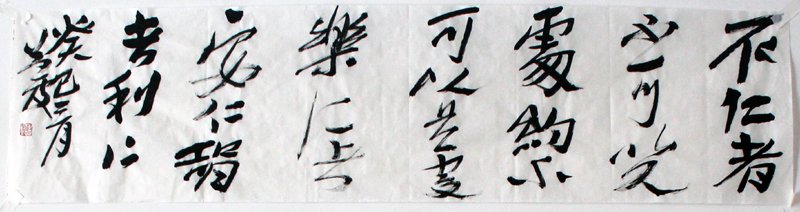 不仁者
不可以久
處約不
可以長處
樂仁者
安仁智
者利仁
癸巳二月